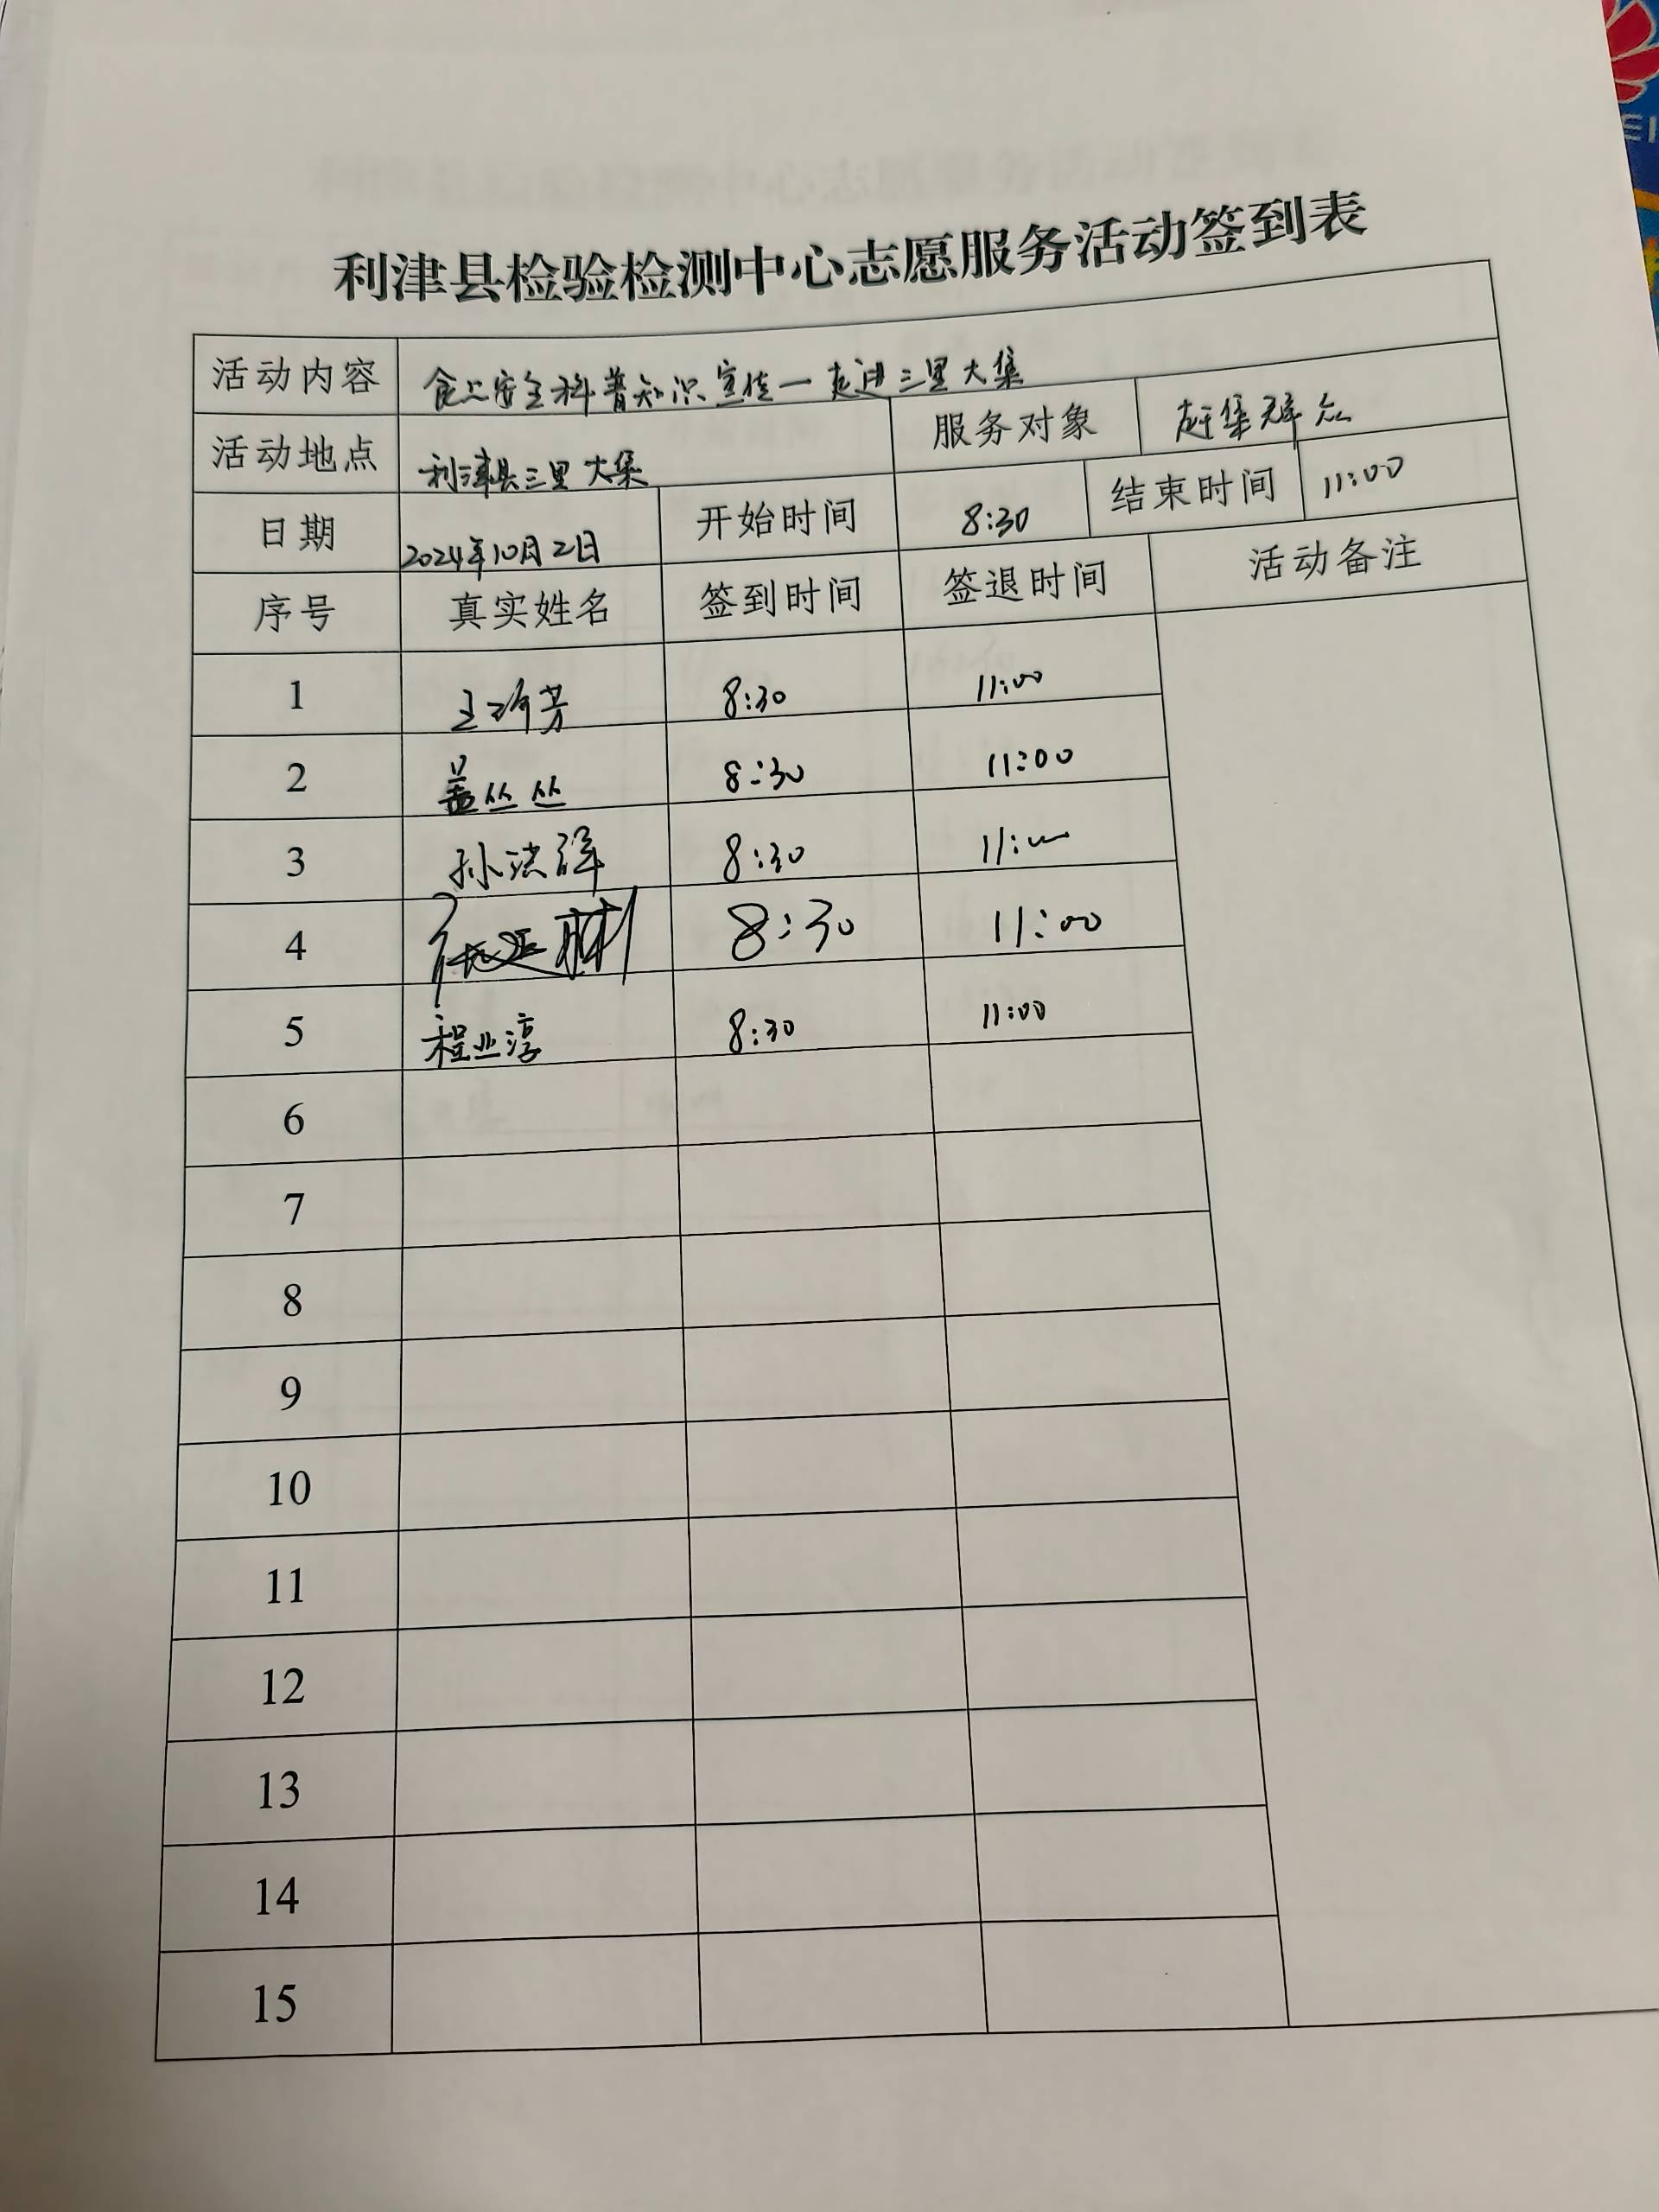 利津县检验检测中心志愿服务活动签到表
活动内容 食品安全科普知识宣传一走进三里大集
活动地点 利津县三里大集 服务对象 赶集群众
日期 2024年10月2日 开始时间 8:30 结束时间 11:00
序号 真实姓名 签到时间 签退时间 活动备注
1 王 芳 8:30 11:00
2 盖丛丛 8:30 11:00
3 孙洪祥 8:30 11:00
4 8:30 11:00
5 程业淳 8:30 11:00
6
7
8
9
10
11
12
13
14
15